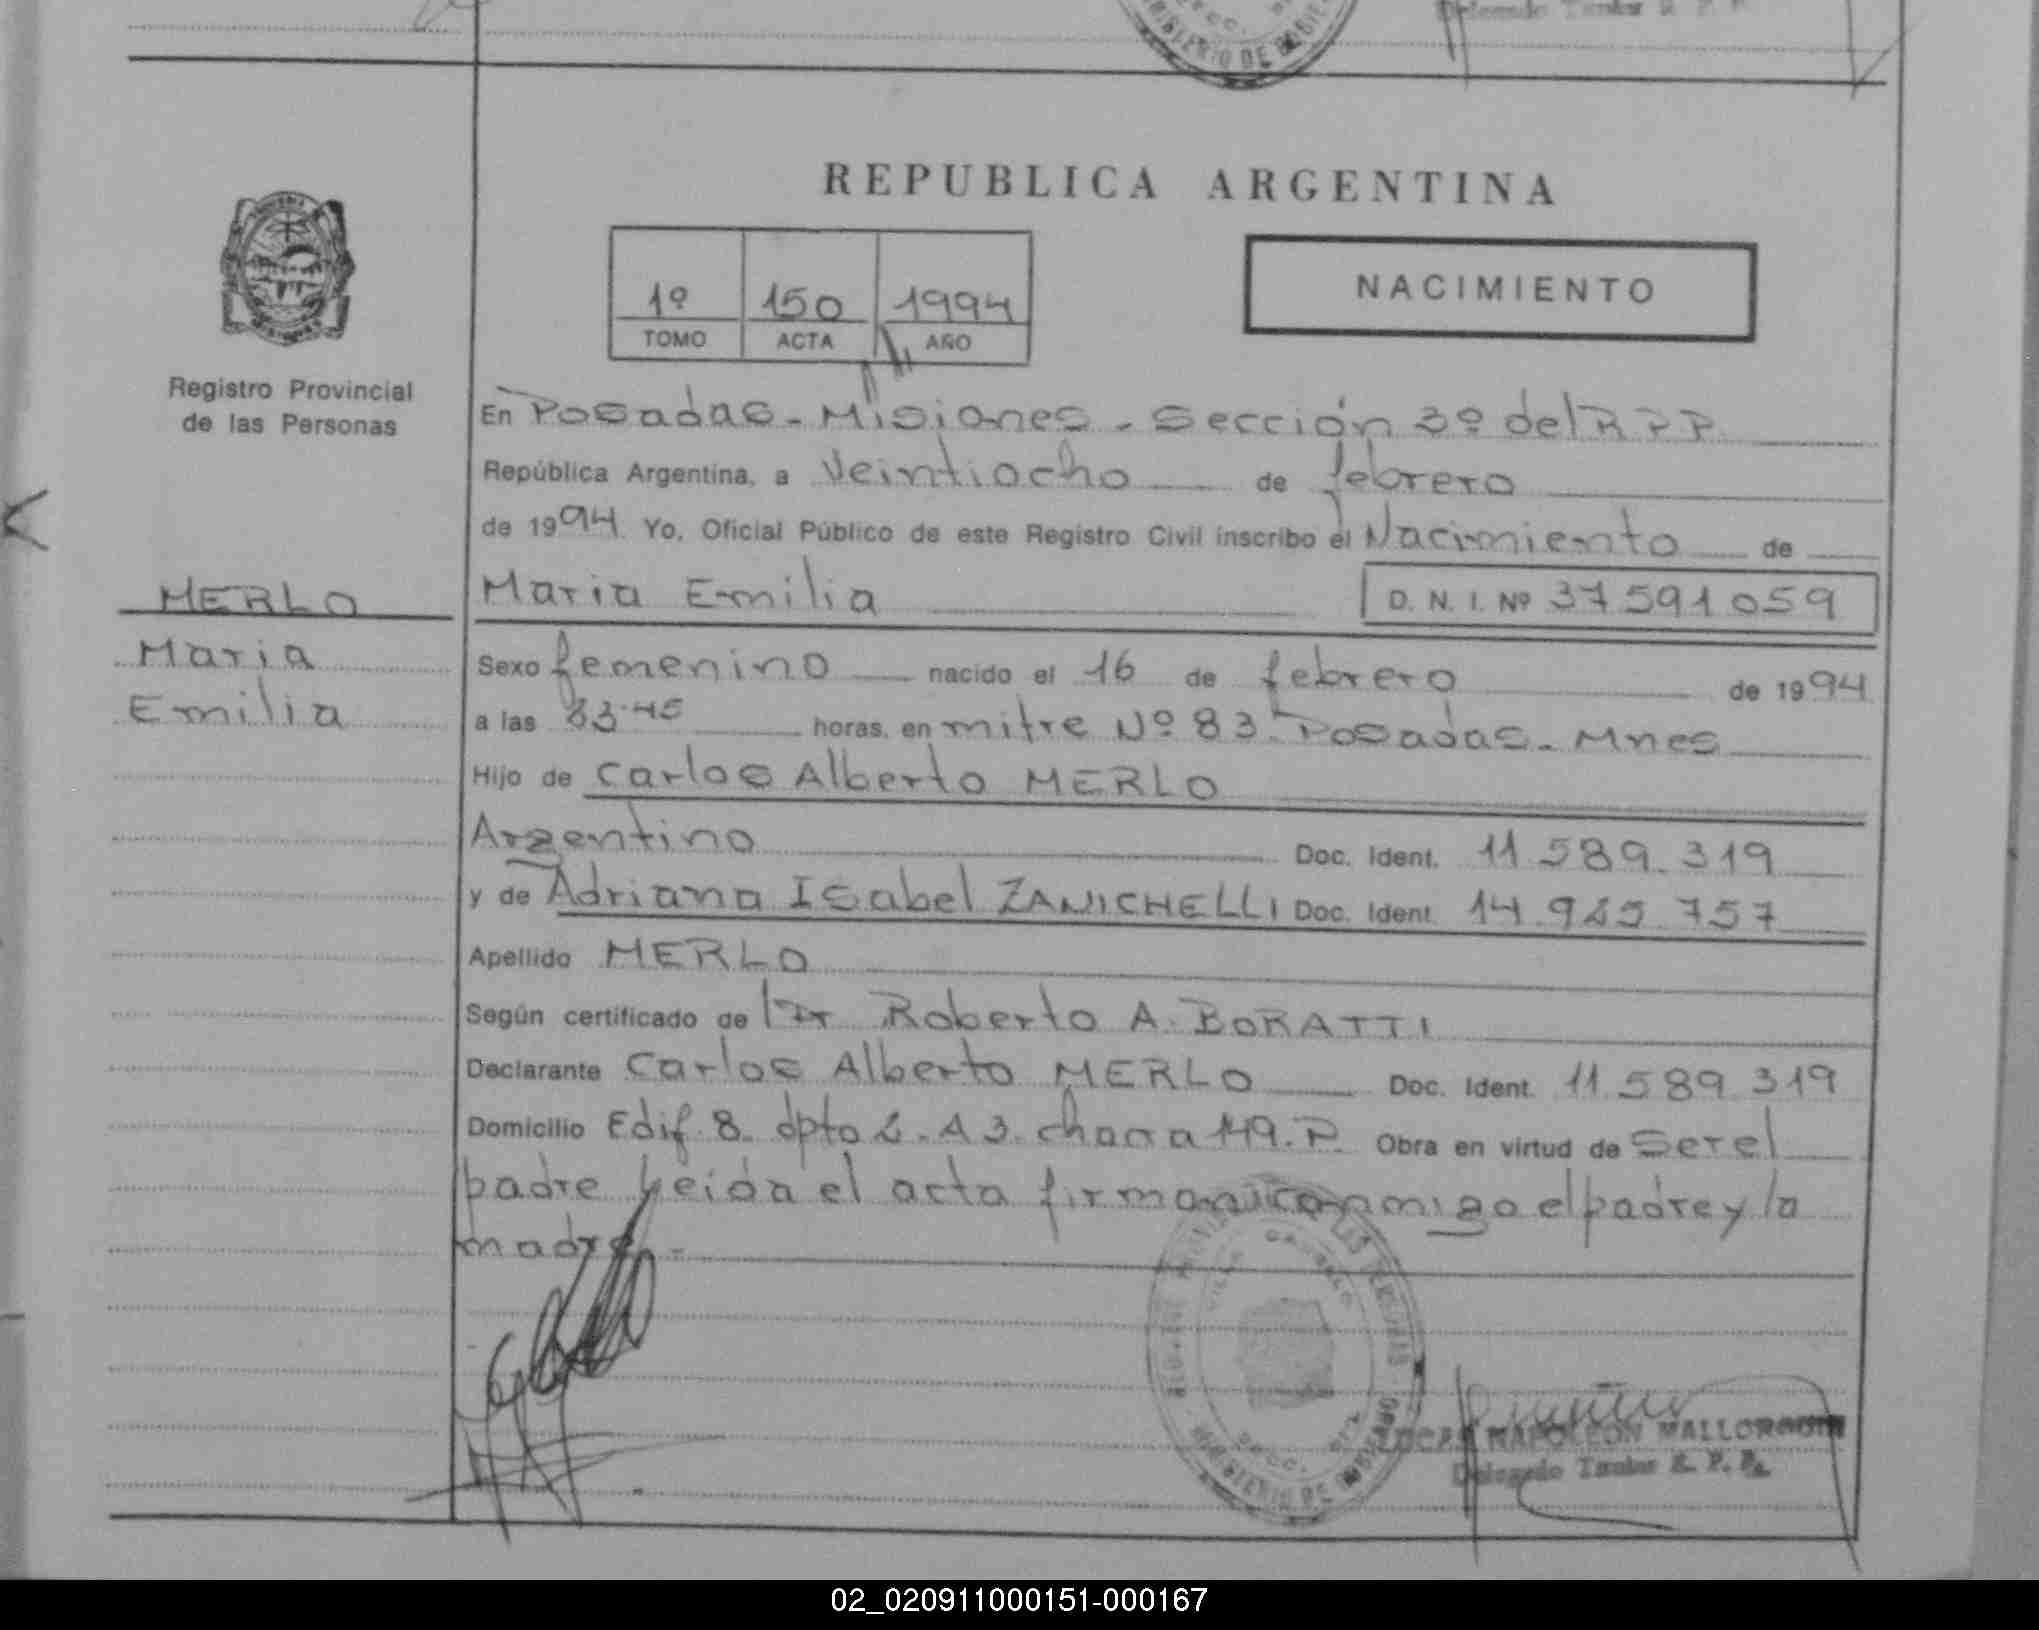 Delegado Titular R. P. P.
MINISTERIO DE GOBIE
REPUBLICA ARGENTINA
NACIMIENTO
1º 150 1994
TOMO ACTA AÑO
Registro Provincial
de las Personas
En Posadas - Misiones - Sección 3º del R P P.
República Argentina, a Veintiocho de febrero
de 1994 Yo, Oficial Público de este Registro Civil inscribo el Nacimiento de
MERLO
Maria Emilia D. N. I. Nº 37591059
Maria
Emilia
Sexo femenino nacido el 16 de febrero de 1994
a las horas, en mitre Nº 83. Posadas - Mnes
Hijo de Carlos Alberto MERLO
Argentino Doc. Ident. 11.589.319
y de Adriana Isabel ZANICHELLI Doc. Ident. 14.9 757
Apellido MERLO
Según certificado de Dr Roberto A. BORATTI
Declarante Carlos Alberto MERLO Doc. Ident. 11.589.319
Domicilio Edif. 8. dpto 2. A 3. chacra 149. P. Obra en virtud de Ser el
padre Leida el acta firman conmigo el padre y la
madre. -
VILLA CABELLO
MINISTERIO DE GOBIERNO
NAPOLEON MALLORQUIN
Delegado Titular R. P. P.
02_020911000151-000167